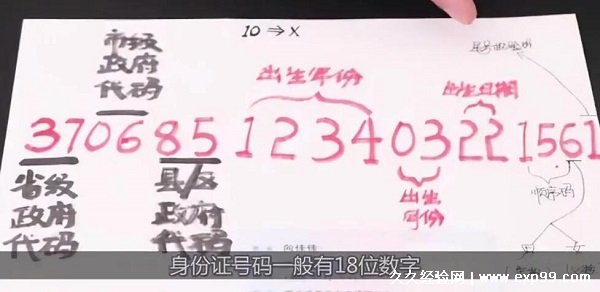 10⇒X
市级
政府
代码
出生年份
出生日期
370685123403221561
省级
政府
代码
县/区
政府
代码
出生
月份
顺序码
男
女
身份证号码一般有18位数字
久久经验网 | www.exp99.com